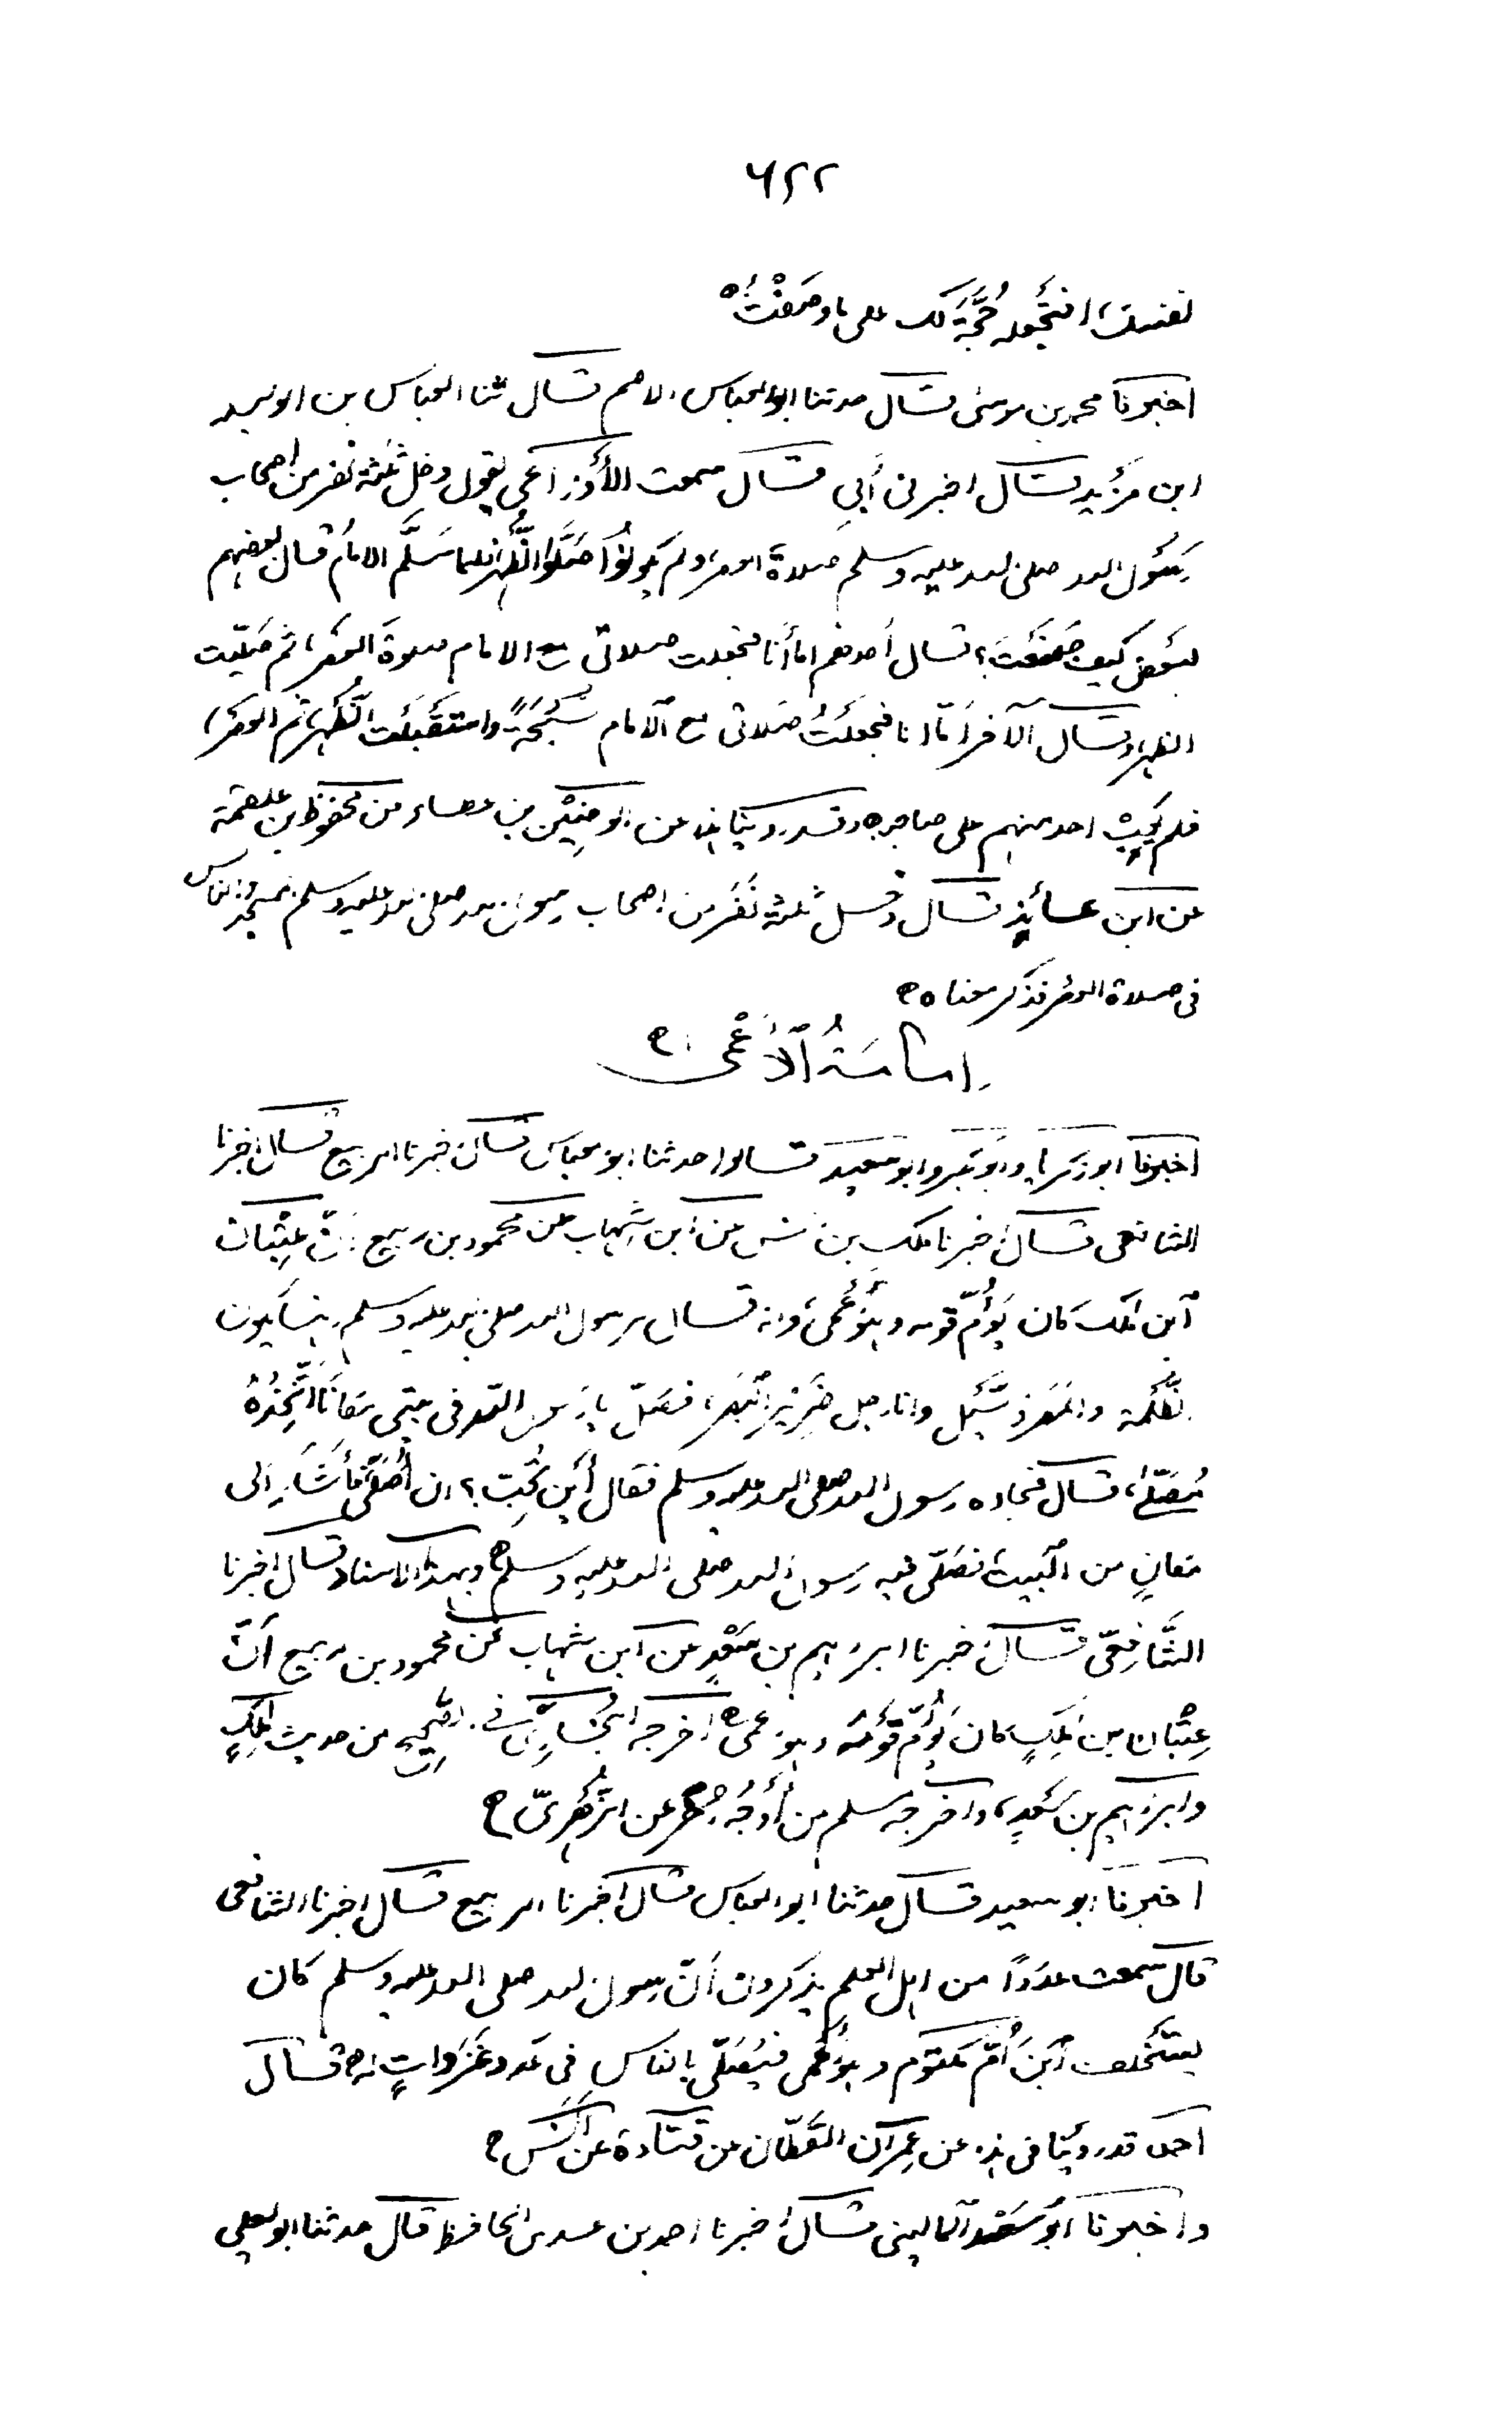 ٦٢٢
نفسك، افتجعله حُجَّةً لك على ما وصَفْتُ ه
اخبرنا محمد بن موسىٰ قال حدثنا ابو العباس الاصم قال ثنا العباس بن الوليد
ابن مزيد قال اخبرنى أبى قال سمعت الأوزاعى يقول دخل ثلثة نفر من اصحاب
رسُول الله صلى الله عليه وسلم صلاة العصر، ولم يكونُوا صَلَّوا الظُّهر، فلما سَلَّم الامامُ قال بعضهم
لبعض كيف صَنَعْتَ؟ قال أحدهم اما أنا فجعلت صلاتى مع الامام صلوةَ العصر، ثم صليت
الظهر، وقال الآخر أمّا انا فجعلتُ صَلاتى مع الامام سُبْحَةً واستقبلت الظُّهر، ثم العصر،
فلم يَعِبْ احد منهم على صاحبه ه وقد روينا ايضا عن الوضين بن عطاء من محفوظ بن علقمة
عن ابن عائذٍ قال دخل ثلثة نَفَر من اصحاب رسول الله صلى الله عليه وسلم المسجد والناس
فى صلاة العصر فذكر معناه ه
إمامَةُ الأعْمى ه
اخبرنا ابو زكريا، وابو بكر وابو سعيد قالوا حدثنا ابو العباس قال اخبرنا الربيع قال اخبرنا
الشافعى قال اخبرنا ملك بن انس عن ابن شِهاب عن محمود بن ربيع أنّ عِتْبان
ابن ملك كان يَؤُمّ قومه وهُوَ أعْمىٰ، وانه قال لرسول الله صلى الله عليه وسلم إنها تكون
الظُّلمة والمَطر والسَّيْل وانا رجل ضَرِيْرُ البَصر، فصَلِّ يا رَسول الله فى بيتى مَكانًا أتَّخِذُهُ
مُصَلّىٰ، قال فجاءه رسول الله صلى الله عليه وسلم فقال أين تُحِبّ؟ ان أُصَلِّىَ فأشَارَ الى
مَكانٍ من البَيت، فصَلّى فيه رسول الله صلى الله عليه وسلم ه وبهذا الاسناد قال اخبرنا
الشَّافِعىّ قال اخبرنا ابراهيم بن سَعْدٍ عن ابن شهاب عن محمود بن ربيع أنّ
عِتْبان بن ملِكٍ كان يَؤُمّ قَوْمَه وهو أعمىٰ ه اخرجه البُخارِىُّ فى الصَّحِيح من حديث ملكٍ
وابراهيم بن سَعْدٍ، واخرجه مسلم من أوْجُهٍ أُخَر عن الزُّهْرِىّ ه
اخبرنا ابو سعيد قال حدثنا ابو العباس قال اخبرنا الربيع قال اخبرنا الشافعى
قال سمعت عدَدًا من اهل العلم يذكرون أنّ رسول الله صلى الله عليه وسلم كان
يستخلف ابْنَ أُمّ مكتوم وهو أعْمى فيُصَلّى بالناس فى عَدد غَزَواتٍ له ه قال
احمد قد روينا فى هذا عن عِمران القَطّان عن قتادة عن أنس ه
واخبرنا أبُو سَعْد المالينى قال اخبرنا احمد بن عدى الحافظ قال حدثنا ابو يعلى